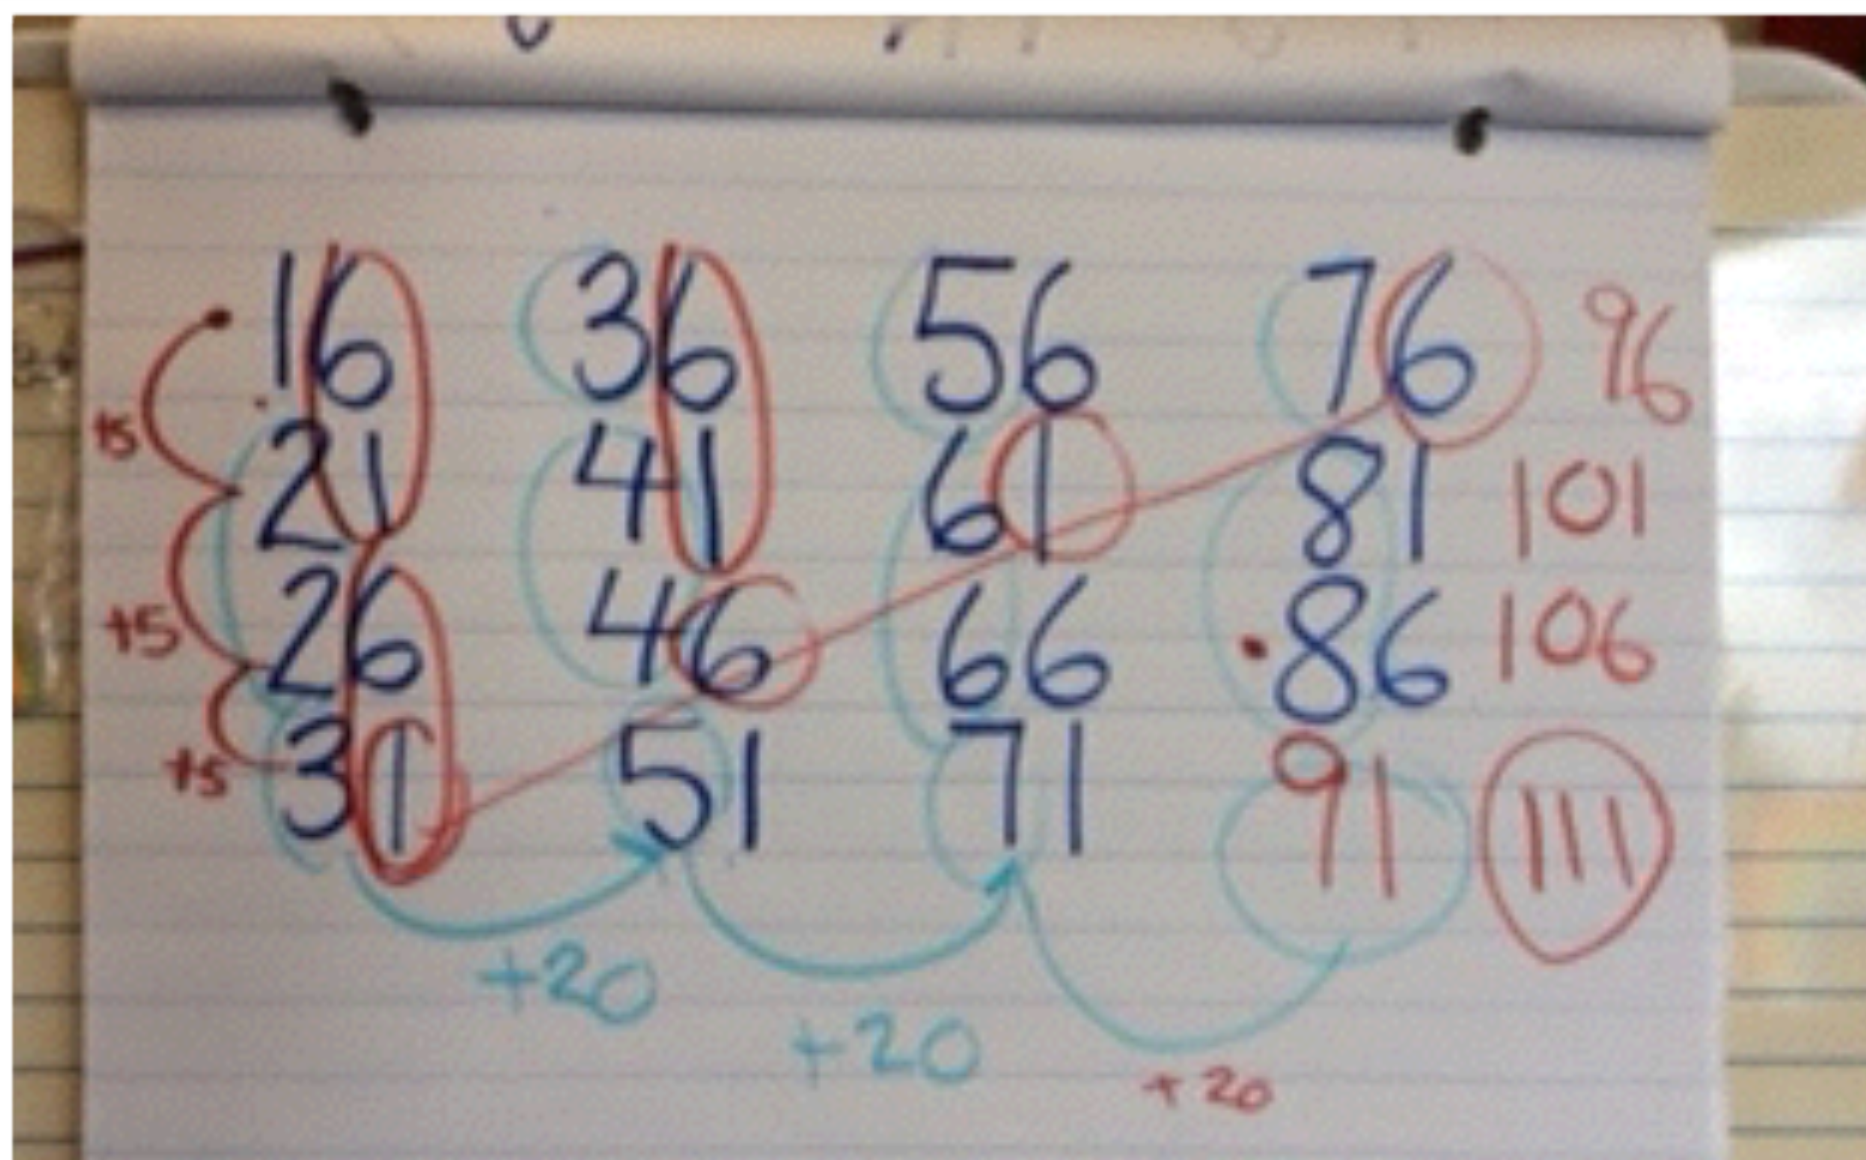 16 36 56 76 96
+5
21 41 61 81 101
+5
26 46 66 86 106
+5
31 51 71 91 111
+20
+20
+20